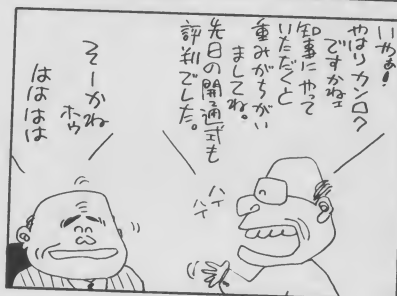 いやぁ!
やはりカンロク
ですかねェ
知事にやって
いただくと
重みがちがい
ましてね。
先日の開通式も
評判でした。
ハイ
ハイ
そーかね
ホウ
はははは